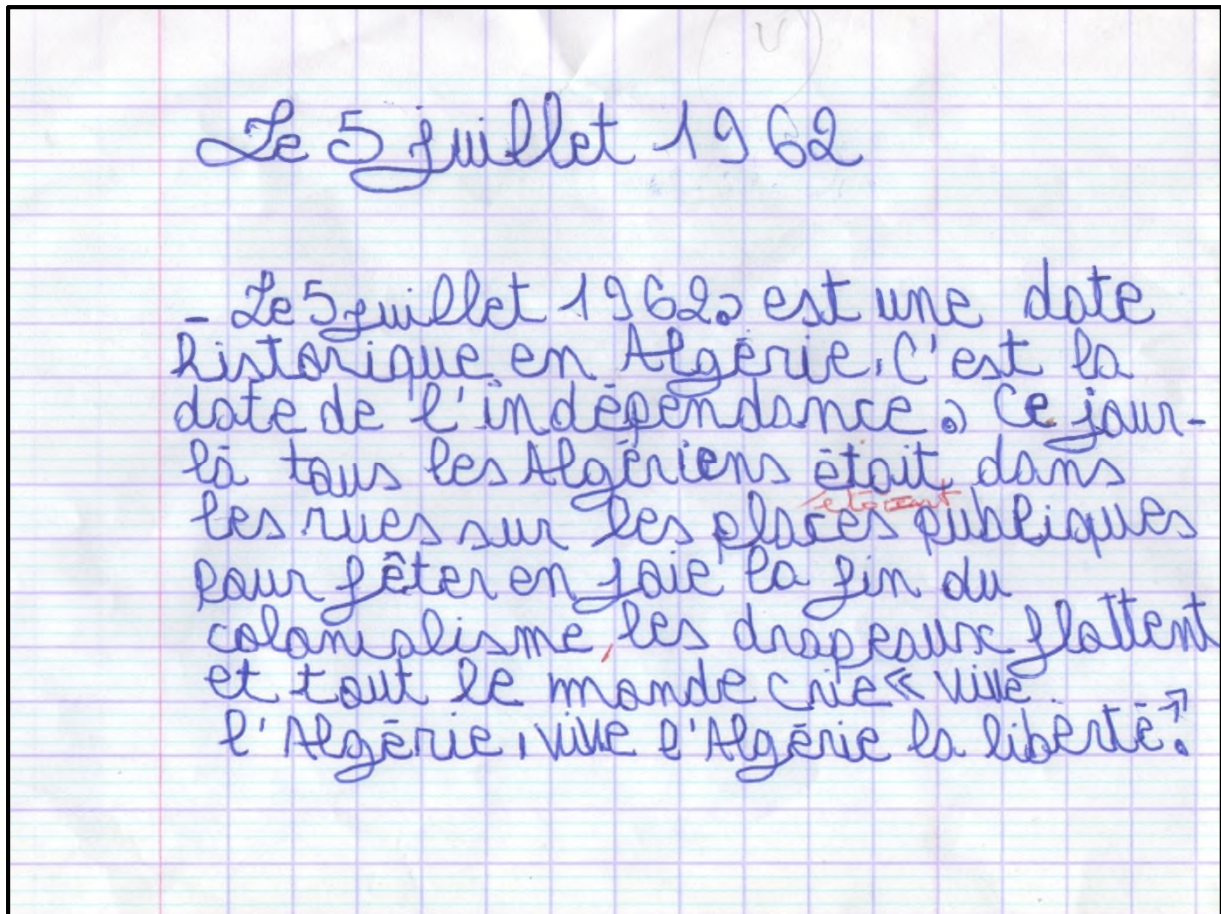 Le 5 juillet 1962
- Le 5 juillet 1962. est une date
historique en Algérie. C'est la
date de l'indépendance. Ce jour-
là tous les Algériens était dans
étaient
les rues sur les places publiques
pour fêter en joie la fin du
colonialisme, les drapeaux flottent
et tout le monde crie « vive
l'Algérie, vive l'Algérie la liberté. »